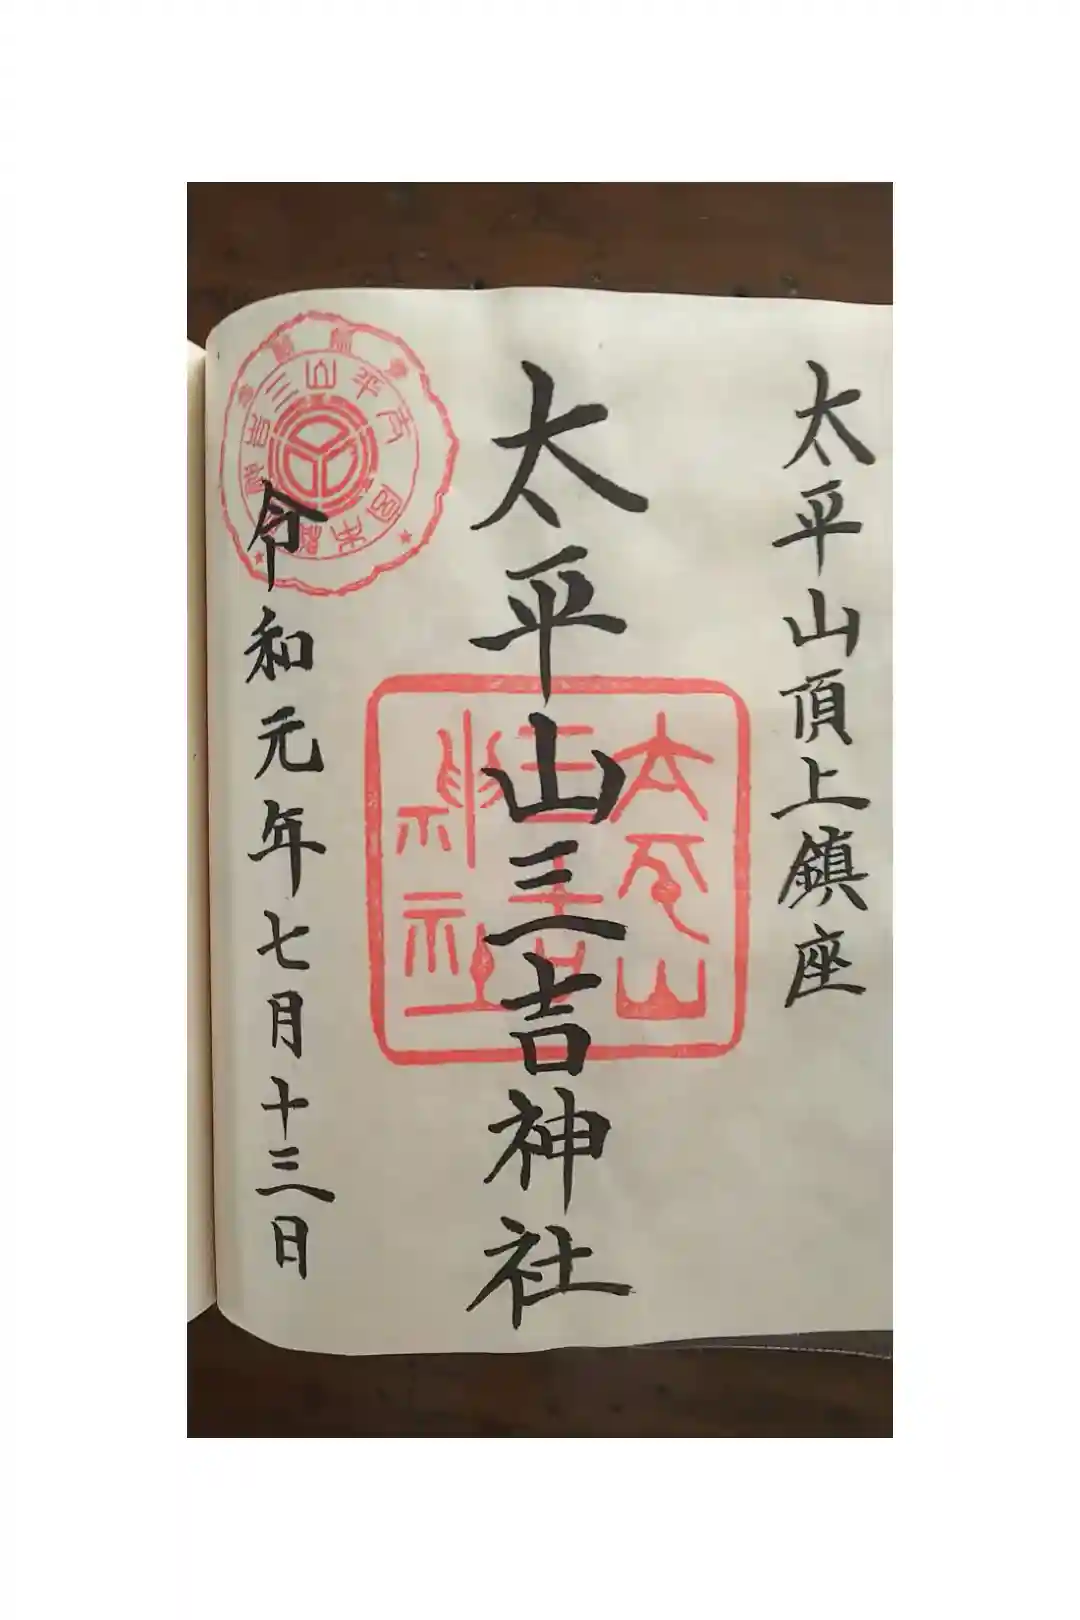 太平山頂上鎮座
太平山三吉神社
令和元年七月十三日
太平山
三吉
神社